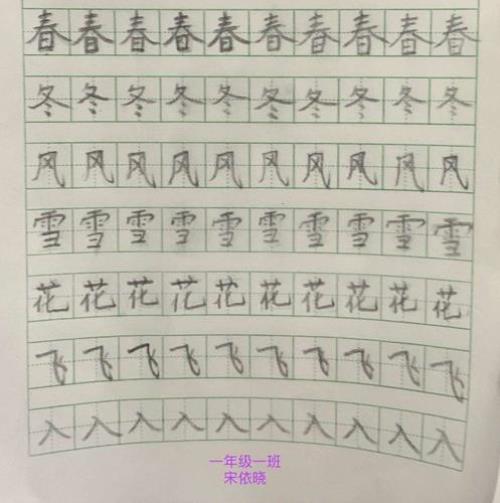 春春春春春春春春春春
冬冬冬冬冬冬冬冬冬冬
风风风风风风风风风风
雪雪雪雪雪雪雪雪雪雪
花花花花花花花花花花
飞飞飞飞飞飞飞飞飞飞
入入入入入入入入入入
一年级一班
宋依晓